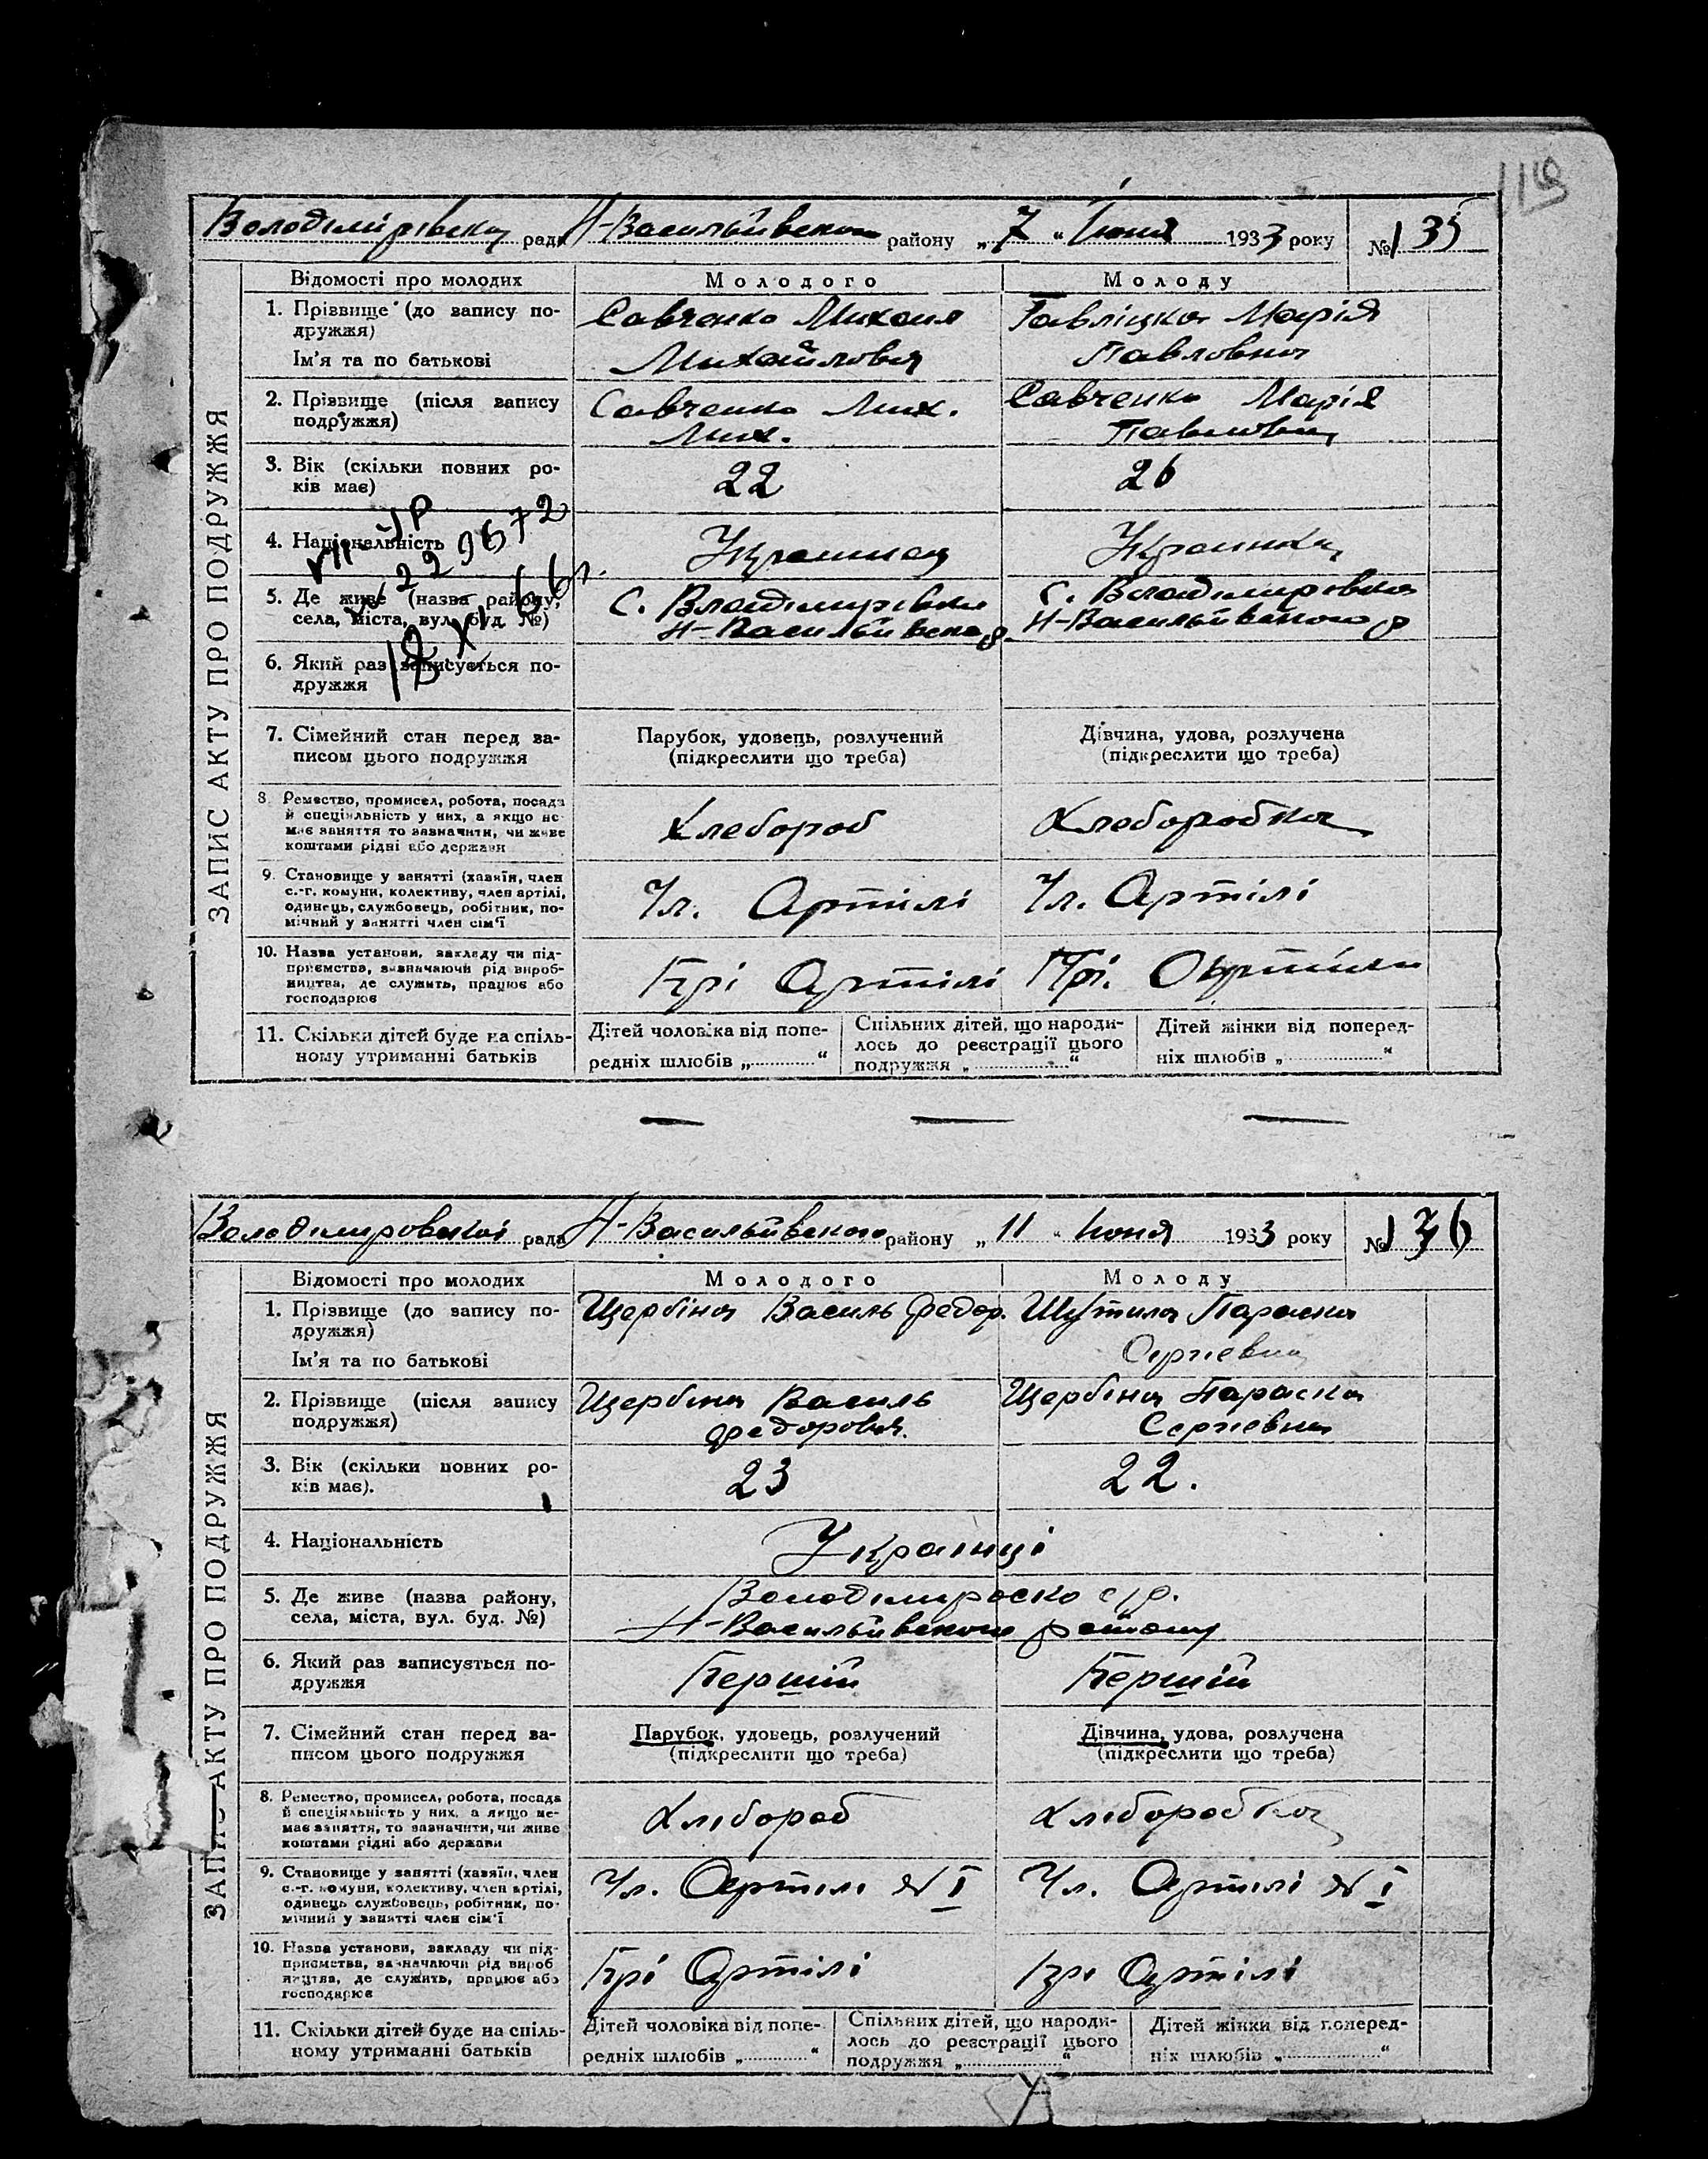 119
Володимірівська рада Н-Васильївського району „7“ Июня 1933 року № 135
ЗАПИС АКТУ ПРО ПОДРУЖЖЯ
Відомості про молодих Молодого Молоду
1. Прізвище (до запису по-
дружжя)
Савченко Михаил Гавліцка Марія
Ім'я та по батькові
Михайлович Павловна
2. Прізвище (після запису
подружжя)
Савченко Мих. Савченко Марія
Мих. Павловна
3. Вік (скільки повних ро-
ків має)
22 26
4. Національність
Украинец Украинка
5. Де живе (назва району,
села, міста, вул. буд. №)
с. Владимировка с. Владимировка
Н-Васильївского р Н-Васильївского р
6. Який раз записується по-
дружжя
7. Сімейний стан перед за-
писом цього подружжя
Парубок, удовець, розлучений Дівчина, удова, розлучена
(підкреслити що треба) (підкреслити що треба)
8. Ремество, промисел, робота, посада
й спеціяльність у них, а якщо не
має заняття то зазначити, чи живе
коштами рідні або держави
Хлебороб Хлеборобка
9. Становище у занятті (хазяїн, член
с.-г. комуни, колективу, член артілі,
одинець, службовець, робітник, по-
мічний у занятті член сім'ї
Чл. Артілі Чл. Артілі
10. Назва установи, закладу чи під-
приємства, зазначаючи рід вироб-
ництва, де служить, працює або
господарює
Прі Артілі Прі. Артили
11. Скільки дітей буде на спіль-
ному утриманні батьків
Дітей чоловіка від попе-
редніх шлюбів „ “
Спільних дітей, що народи-
лось до реєстрації цього
подружжя „ “
Дітей жінки від поперед-
ніх шлюбів „ “
229672
12 XI 66г.
Володимировской рада Н-Васильївского району „11“ Июня 1933 року № 136
ЗАПИС АКТУ ПРО ПОДРУЖЖЯ
Відомості про молодих Молодого Молоду
1. Прізвище (до запису по-
дружжя)
Щербіна Василь Федор. Шутила Параска
Ім'я та по батькові
Сергіевна
2. Прізвище (після запису
подружжя)
Щербіна Василь Щербіна Параска
Федорович. Сергіевна
3. Вік (скільки повних ро-
ків має).
23 22.
4. Національність
Українці
5. Де живе (назва району,
села, міста, вул. буд. №)
Володимироско с/р.
Н-Васильївского району
6. Який раз записується по-
дружжя
Першій Першій
7. Сімейний стан перед за-
писом цього подружжя
Парубок, удовець, розлучений Дівчина, удова, розлучена
(підкреслити що треба) (підкреслити що треба)
8. Ремество, промисел, робота, посада
й спеціяльність у них, а якщо не-
має заняття, то зазначити, чи живе
коштами рідні або держави
Хлібороб Хліборобка
9. Становище у занятті (хазяїн, член
с.-г. комуни, колективу, член артілі,
одинець службовець, робітник, по-
мічний у занятті член сім'ї
Чл. Артілі № I Чл. Артілі № I
10. Назва установи, закладу чи під-
приємства, зазначаючи рід вироб
ництва, де служить, працює або
господарює
Прі Артілі Прі Артілі
11. Скільки дітей буде на спіль-
ному утриманні батьків
Дітей чоловіка від попе-
редніх шлюбів „ “
Спільних дітей, що народи-
лось до реєстрації цього
подружжя „ “
Дітей жінки від поперед-
ніх шлюбів „ “